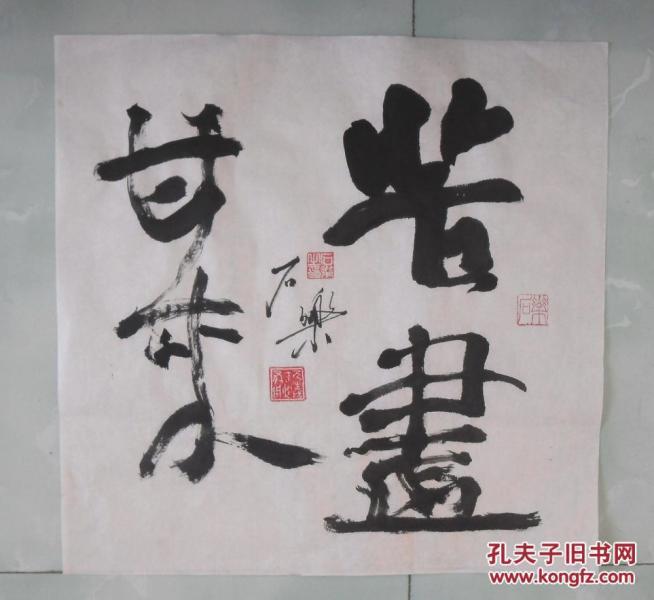 苦盡
甘來
石樂
孔夫子旧书网
www.kongfz.com